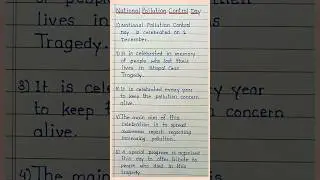 National Pollution Control Day
1) National Pollution Control
Day is celebrated on 2
December.
2) It is celebrated in memory
of people who lost their
lives in Bhopal Gas
Tragedy.
3) It is celebrated every year
to keep the pollution concern
alive.
4) The main aim of this
celebration is to spread
awareness regarding
increasing pollution.
5) A special program is organised
this day to offer tribute to
people who died in this
tragedy.
of people
lives in
Tragedy.
3) It is
to keep
alive.
4) The main
year
concern